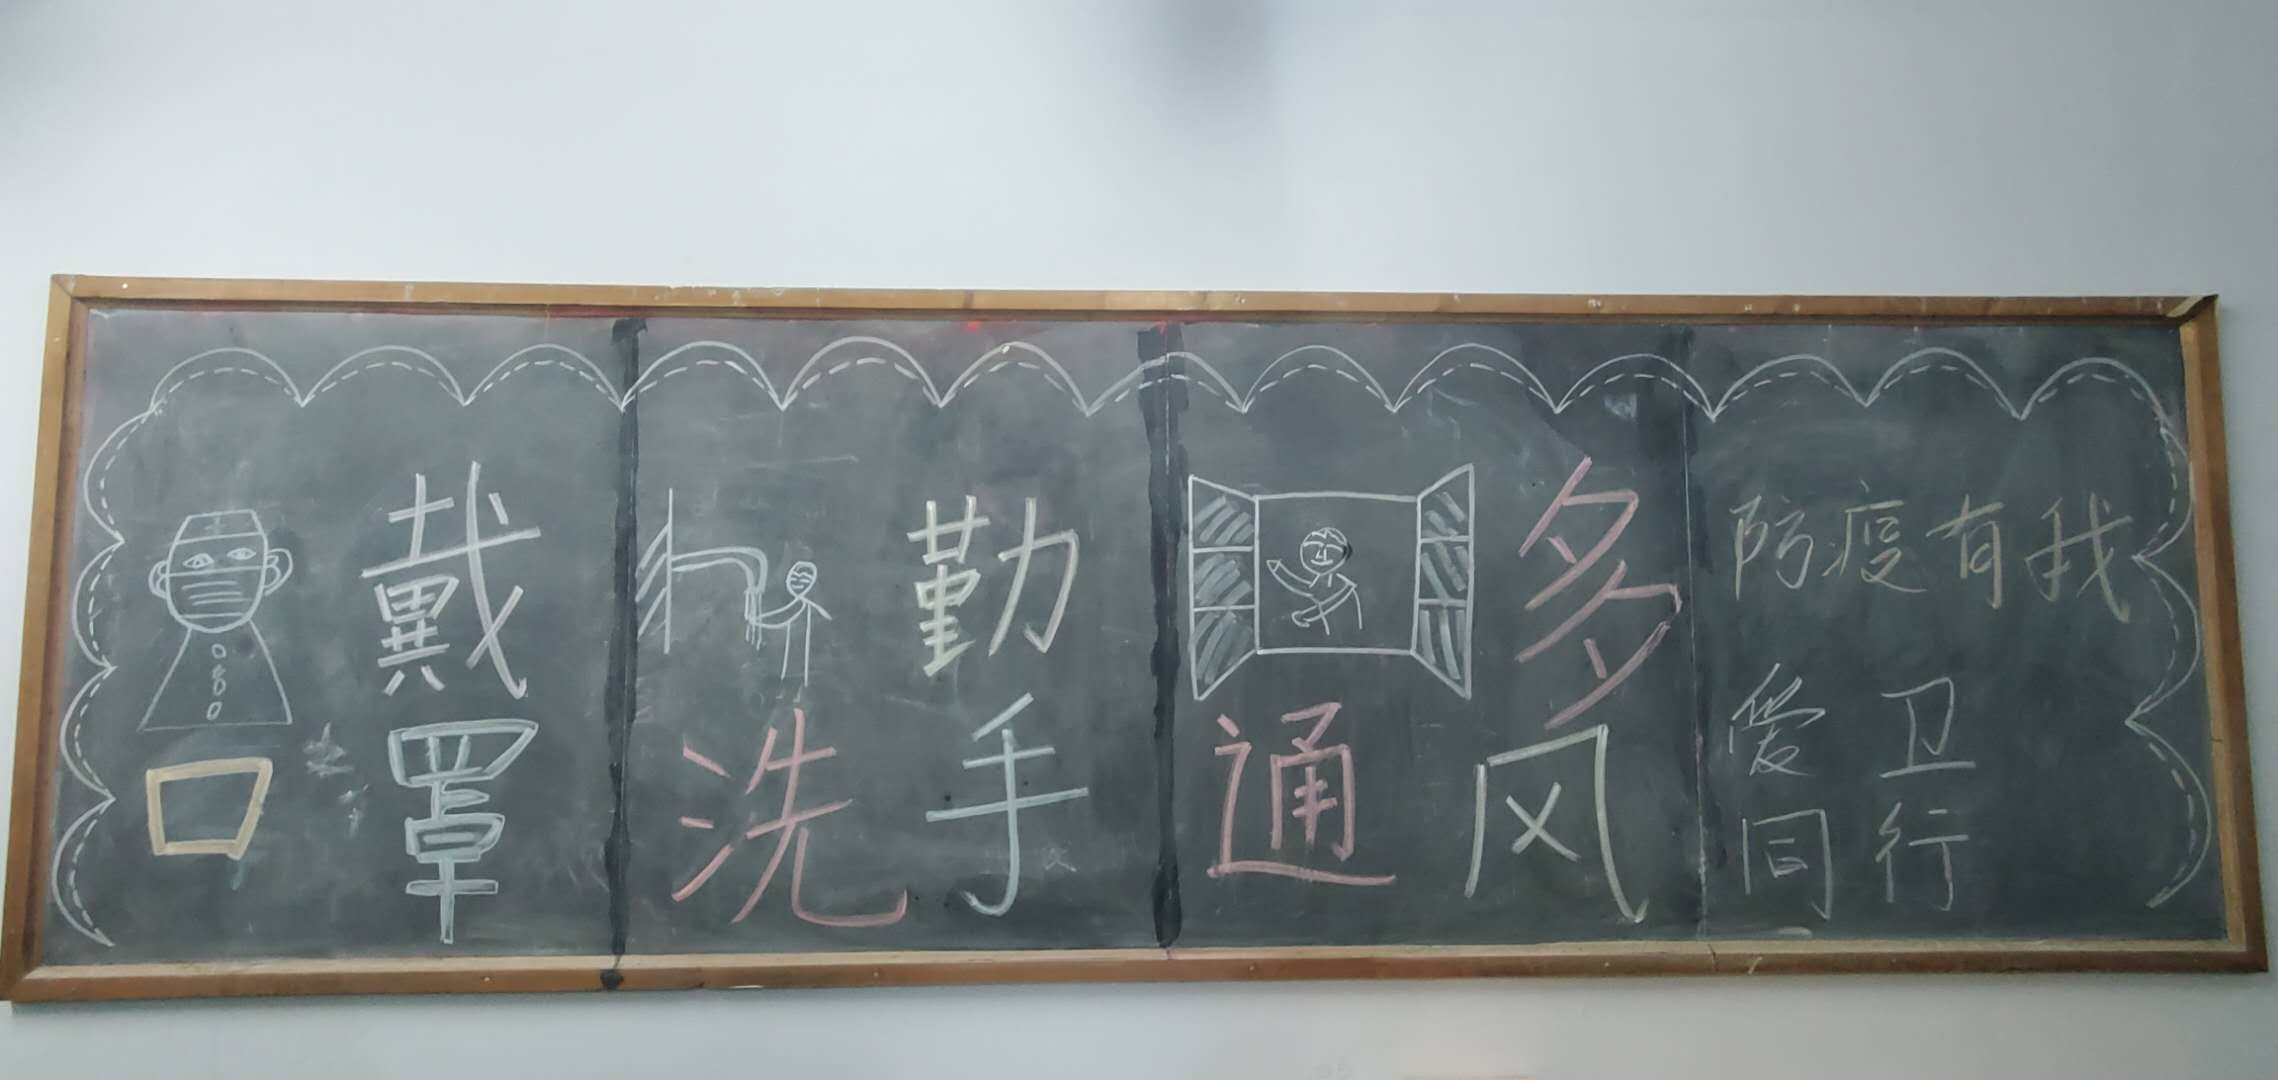 戴
口罩
勤
洗手
多
通风
防疫有我
爱卫
同行